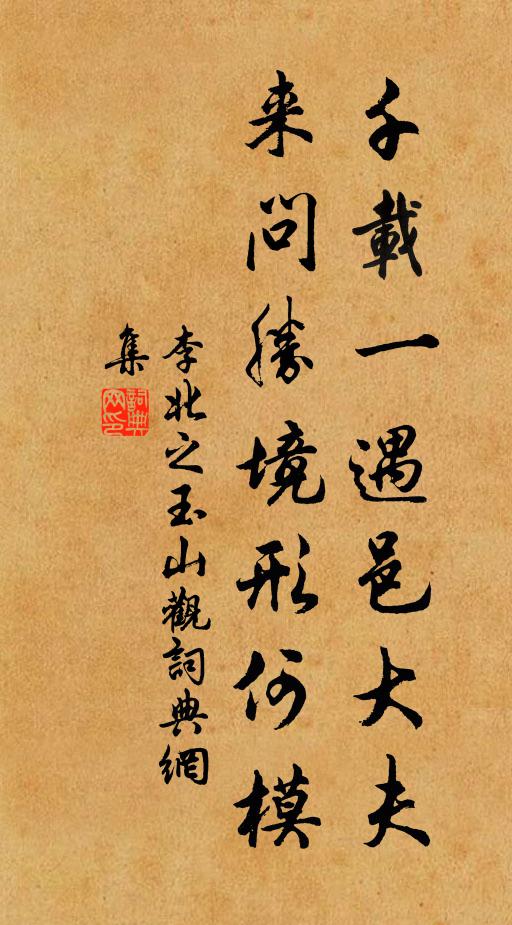 千載一遇邑大夫
来問勝境形何模
李北之玉山觀詞典網
集
詞典
网印